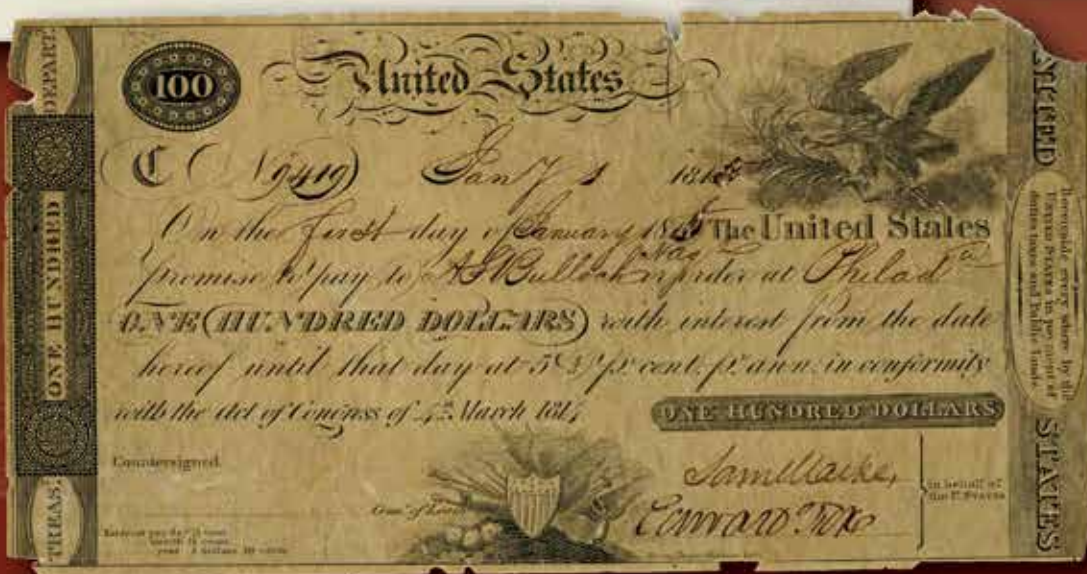 DEPART.
ONE HUNDRED
TREAS.
100
United States
C No 9419) Jany 1 181
On the first day of January 18 The United States
promise to pay to Bullock or order at Philada
ONE (HUNDRED DOLLARS) with interest from the date
hereof until that day at 5 2/5 pr. cent. pr. ann. in conformity
with the Act of Congress of 4th March 1814
ONE HUNDRED DOLLARS
Countersigned
Comr. of Loans
Interest per day 1½ cent.
month 45 cents.
year 5 dollars 40 cents.
Edward Fox
in behalf of
the U. States
UNITED
STATES
Receivable every where by the
United States in payment of
duties taxes and Public lands.